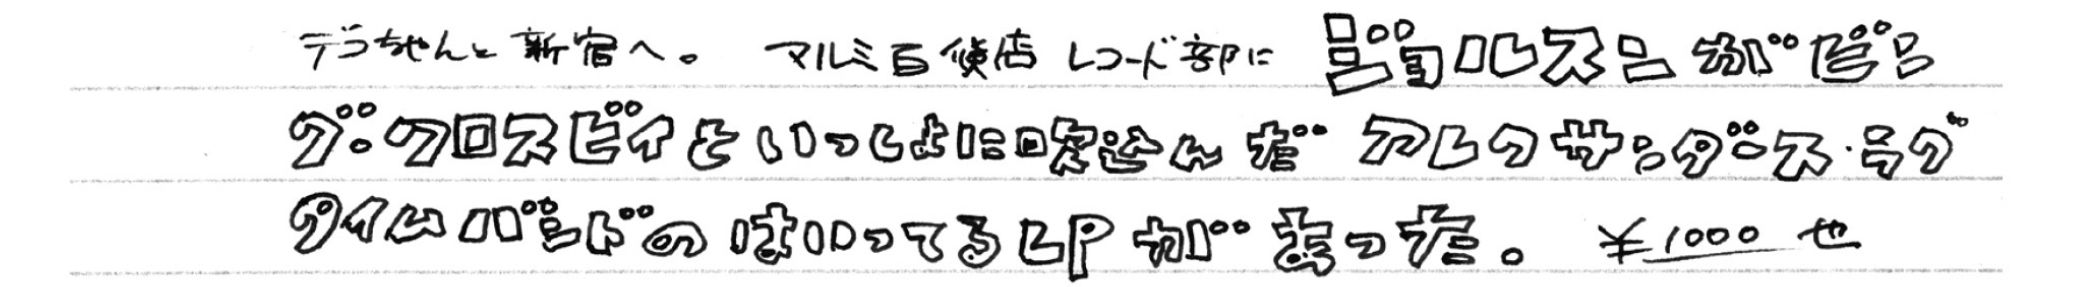 デコちゃんと新宿へ。 マルミ百貨店 レコード部に ジョルスンがビン
グ・クロスビイといっしょに吹込んだ アレクサンダース・ラグ
タイムバンドのはいってるLPがあった。 ¥1000也